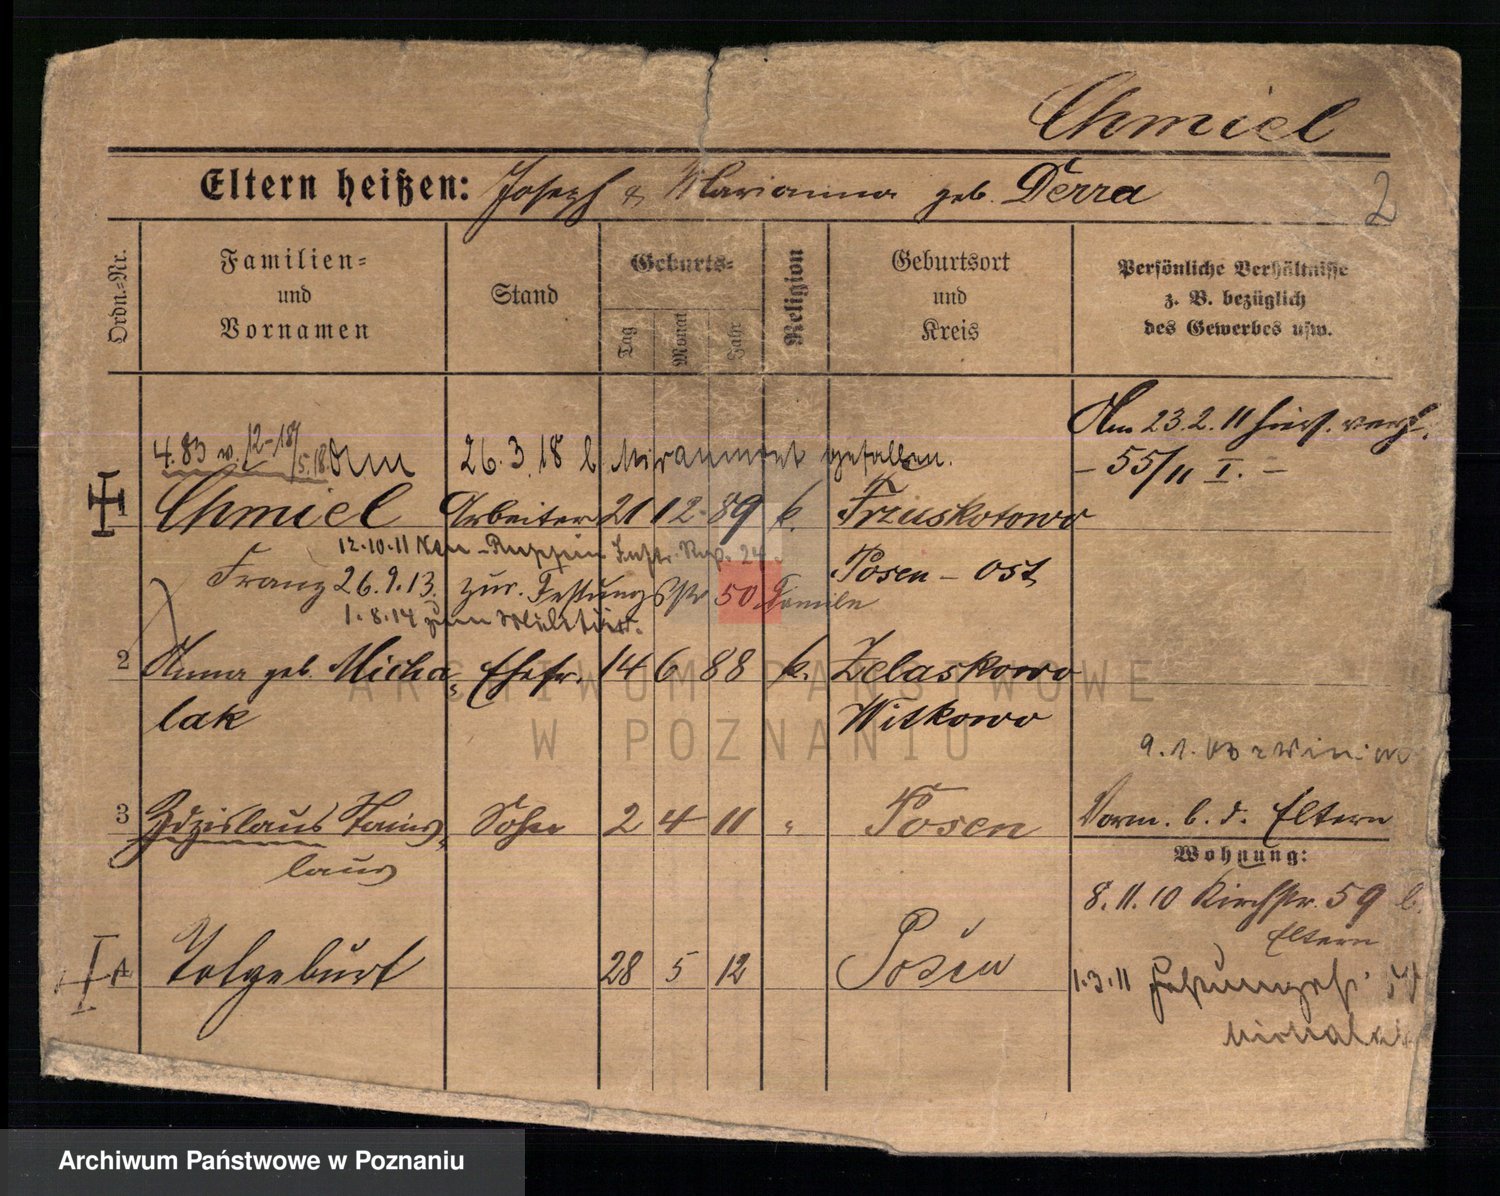 Chmiel
Eltern heißen: Joseph & Marianna geb. Derra
2
Ordn.-Nr.
Familien-
und
Vornamen
Stand
Geburts-
Tag
Monat
Jahr
Religion
Geburtsort
und
Kreis
Persönliche Verhältnisse
z. B. bezüglich
des Gewerbes usw.
Am 23.2.11 hies. verh.
- 55/11 I. -
4.83 v. 12-18/5.18 Am 26.3.18 b Miraumont gefallen.
Chmiel Arbeiter 21 12 89 k. Trzuskotowo
12.10.11 Neu-Ruppin Inftr. Reg. 24.
Franz 26.9.13. zur. Festungsstr 50 Familie
Posen - Ost
1.8.14 zum Militär.
2 Anna geb. Micha- Ehefr. 14 6 88 k. Zelaskowo
lak Witkowo
9.1.
3 Zdzislaus Stanis- Sohn 2 4 11 " Posen
laus
Vorm. b. d. Eltern
Wohnung:
8.11.10 Kirchstr. 59 b.
Eltern
4 Totgeburt 28 5 12 Posen
1.3.11
Michalak
ARCHIWUM PAŃSTWOWE
W POZNANIU
Archiwum Państwowe w Poznaniu